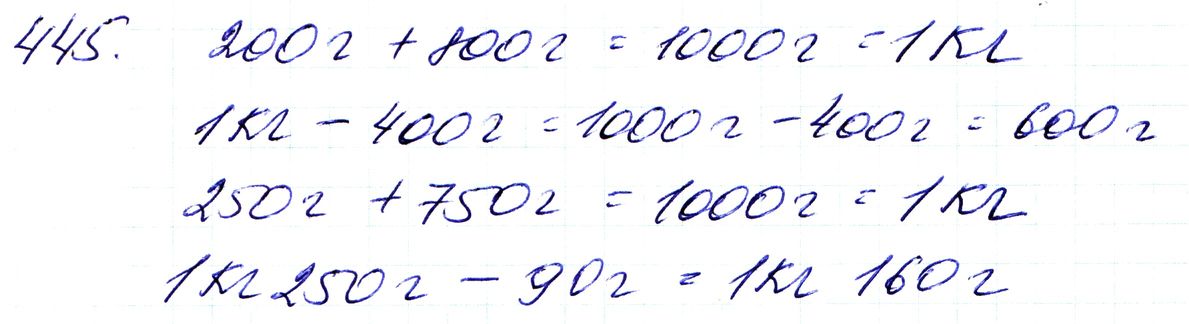 445. 200г + 800г = 1000г = 1кг
1кг - 400г = 1000г - 400г = 600г
250г + 750г = 1000г = 1кг
1кг 250г - 90г = 1кг 160г